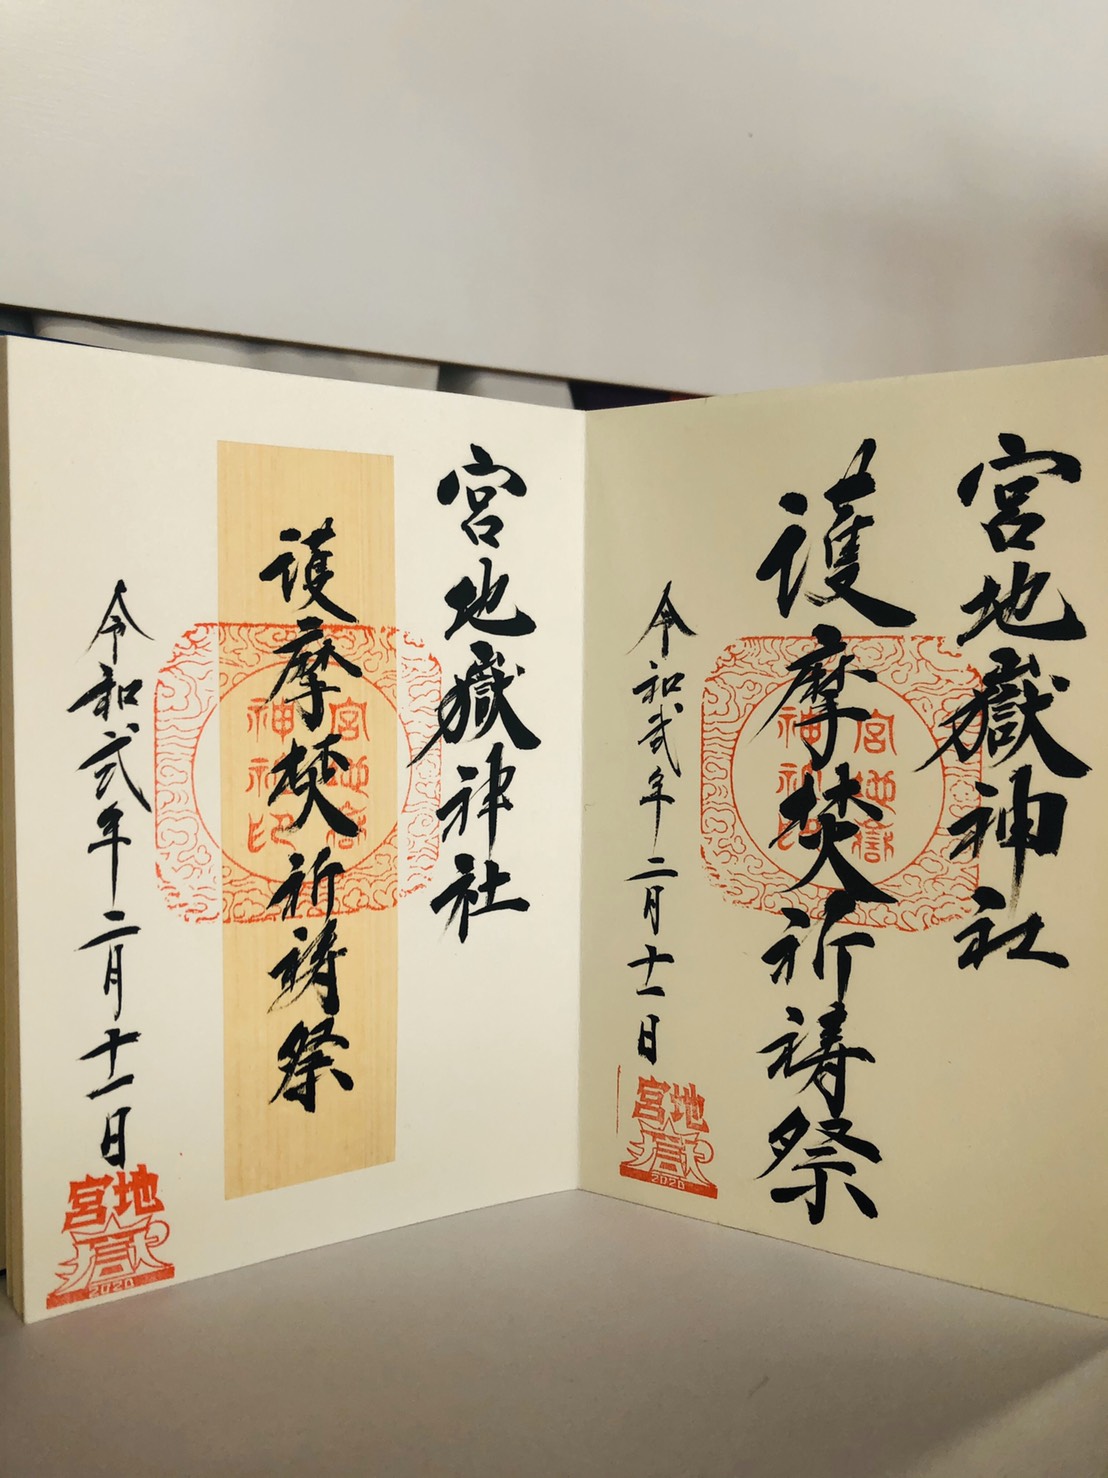 宮地嶽神社
護摩焚祈祷祭
宮地嶽
神社印
令和弐年二月十一日
宮地
嶽
2020
宮地嶽神社
護摩焚祈祷祭
宮地嶽
神社印
令和弐年二月十一日
宮地
嶽
2020